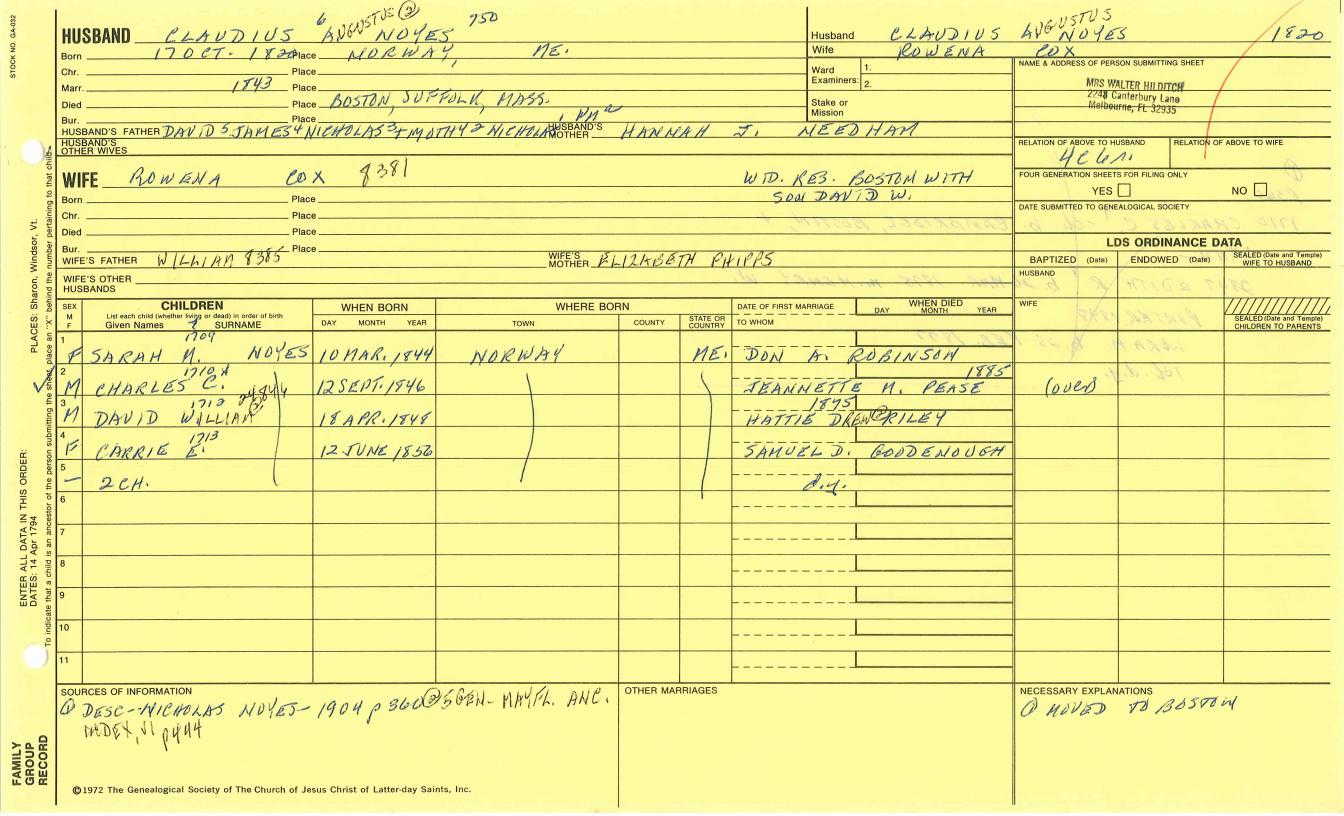 STOCK NO. GA-032
HUSBAND CLAUDIUS 6 AUGUSTUS ② NOYES 750
Born 17 OCT. 1820 Place NORWAY, ME.
Chr. Place
Marr. 1843 Place
Died Place BOSTON, SUFFOLK, MASS.
Bur. Place
HUSBAND'S FATHER DAVID 5 JAMES 4 NICHOLAS 3 TIMOTHY 2 NICHOLAS 1 HUSBAND'S MOTHER HANNAH J. NEEDHAM
HUSBAND'S OTHER WIVES
Husband CLAUDIUS AUGUSTUS NOYES 1820
Wife ROWENA COX
Ward Examiners: 1. 2.
Stake or Mission
NAME & ADDRESS OF PERSON SUBMITTING SHEET
MRS WALTER HILDITCH
2248 Canterbury Lane
Melbourne, FL 32935
RELATION OF ABOVE TO HUSBAND RELATION OF ABOVE TO WIFE
FOUR GENERATION SHEETS FOR FILING ONLY
YES NO
DATE SUBMITTED TO GENEALOGICAL SOCIETY
WIFE ROWENA COX 8381
WID. RES. BOSTON WITH
SON DAVID W.
Born Place
Chr. Place
Died Place
Bur. Place
WIFE'S FATHER WILLIAM 8385 WIFE'S MOTHER ELIZABETH PHIPPS
WIFE'S OTHER HUSBANDS
LDS ORDINANCE DATA
BAPTIZED (Date) ENDOWED (Date) SEALED (Date and Temple) WIFE TO HUSBAND
HUSBAND
WIFE
SEALED (Date and Temple) CHILDREN TO PARENTS
SEX M F CHILDREN WHEN BORN WHERE BORN DATE OF FIRST MARRIAGE WHEN DIED
List each child (whether living or dead) in order of birth
Given Names 7 SURNAME DAY MONTH YEAR TOWN COUNTY STATE OR COUNTRY TO WHOM DAY MONTH YEAR
1 1709
F SARAH M. NOYES 10 MAR. 1844 NORWAY ME. DON A. ROBINSON
2 1710 1885
M CHARLES C. 12 SEPT. 1846 JEANNETTE M. PEASE (over)
3 1712 1875
M DAVID WILLIAM ② 18 APR. 1848 HATTIE DREW ② RILEY
4 1713
F CARRIE E. 12 JUNE 1856 SAMUEL D. GOODENOUGH
5
- 2 CH. d.y.
6
7
8
9
10
11
SOURCES OF INFORMATION
① DESC--NICHOLAS NOYES- 1904 p 360 ② 5 GEN- MAYFL. ANC.
INDEX, VI p444
OTHER MARRIAGES
NECESSARY EXPLANATIONS
① MOVED TO BOSTON
©1972 The Genealogical Society of The Church of Jesus Christ of Latter-day Saints, Inc.
FAMILY GROUP RECORD
ENTER ALL DATA IN THIS ORDER:
DATES: 14 Apr 1794
PLACES: Sharon, Windsor, Vt.
To indicate that a child is an ancestor of the person submitting the sheet, place an "X" behind the number pertaining to that child.